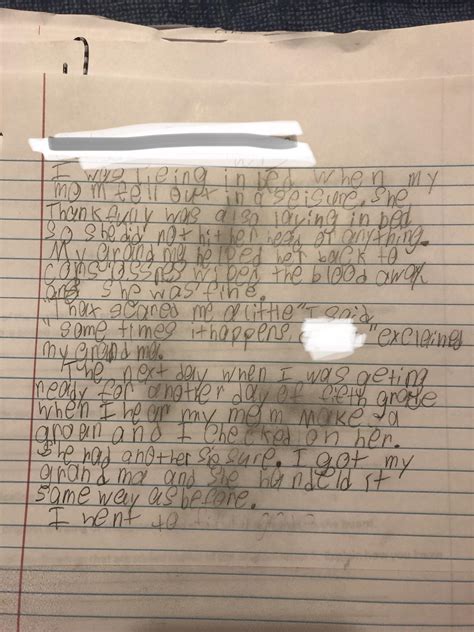 I was lieing in bed when my
mom fell out in a seisure. She
Thankfully was also laying in bed
so she did not hit her head or anything.
My grandma helped her back to
wiped the blood away
and she was fine.
"That scared me a little" I said
"some times it happens, "exclaimed
my grandma.
The next day when I was geting
ready for another day of grade
when I hear my mom make a
groan and I checked on her.
She had another . I got my
grandma and she it
same way as before.
I went to